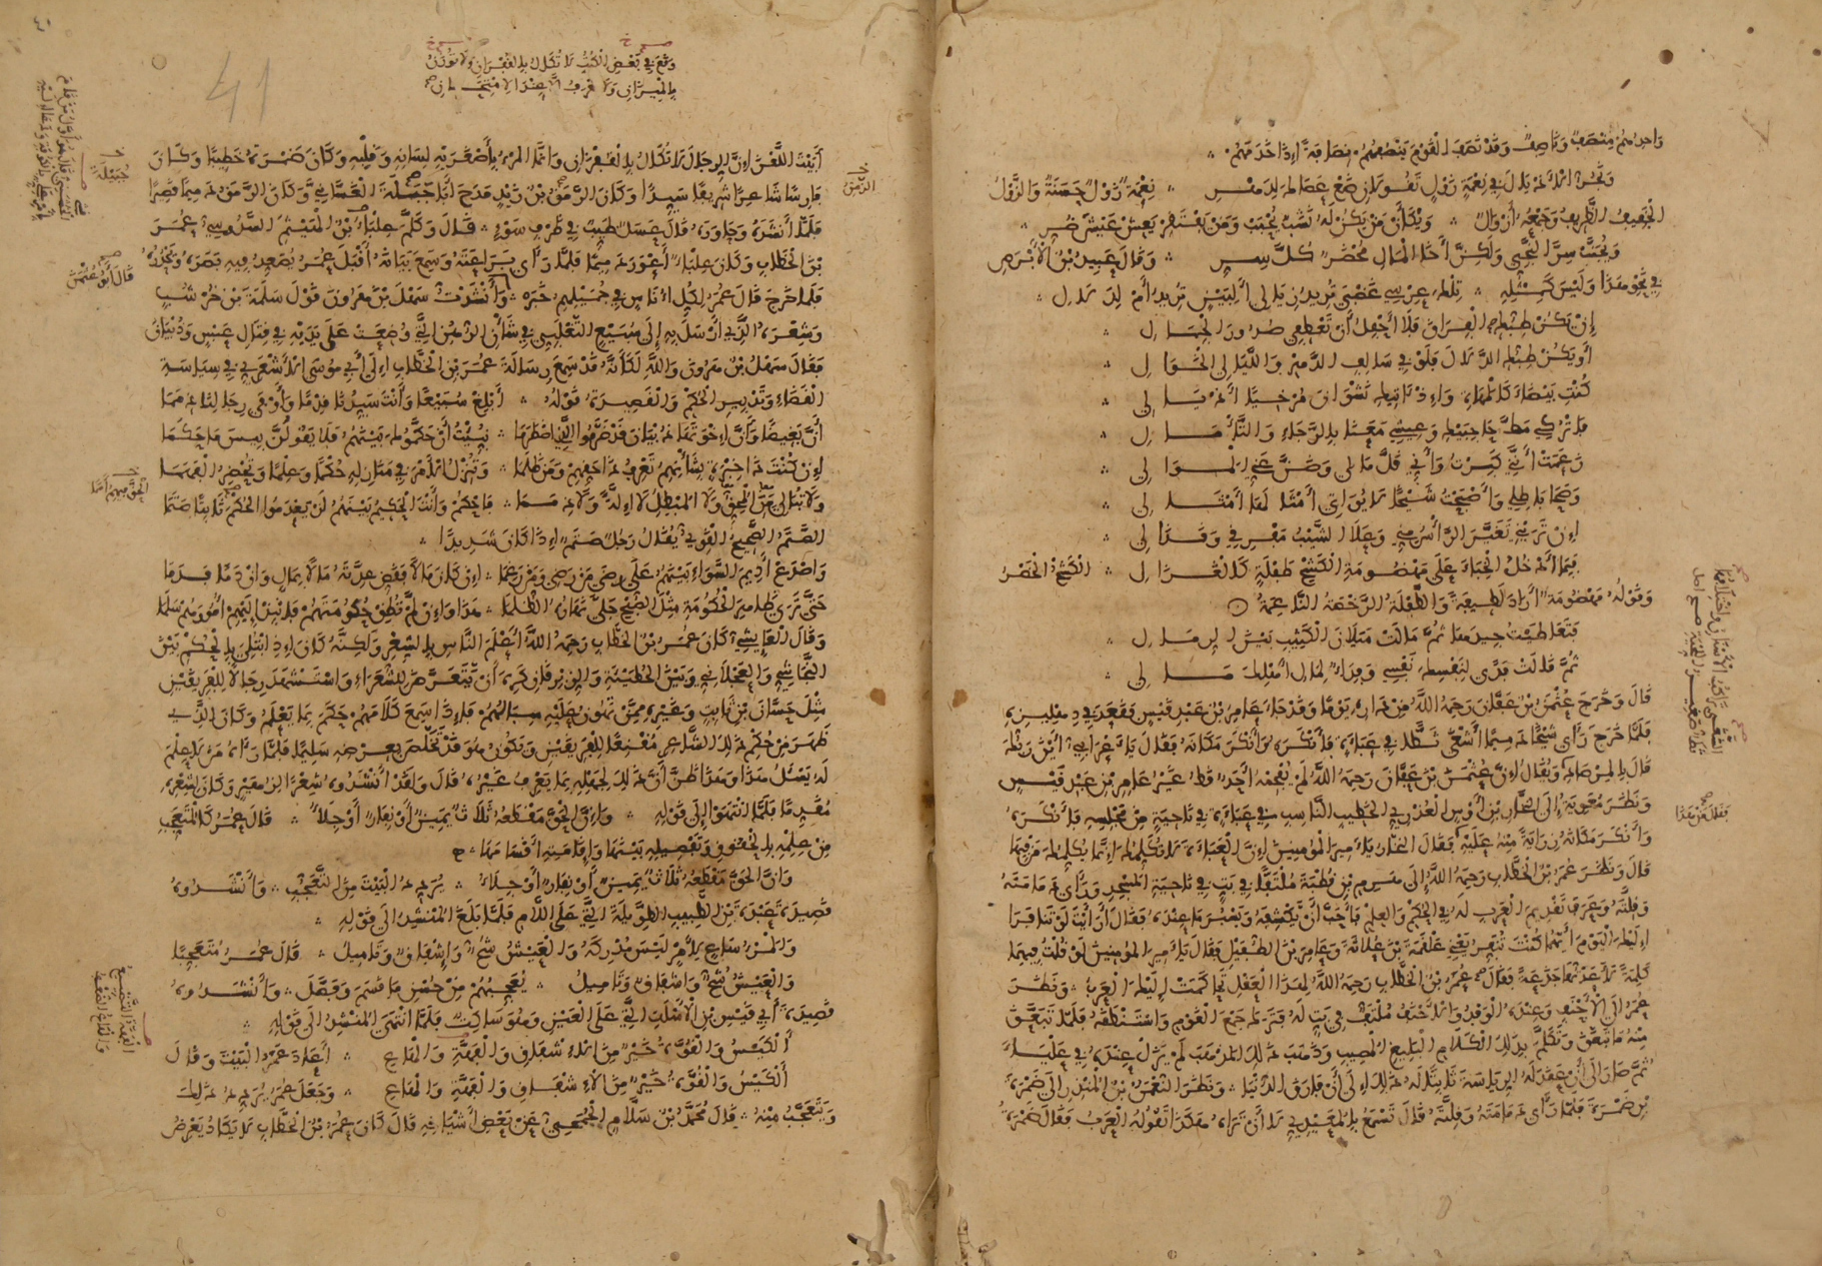 واحدهم منصف وناصف وقد نصف القوم ينصفهم نصافة إذا خدمهم
الخفيف الظريف وجمعه أزوال ويكأن من يكن له نشب يحبب ومن يفتقر يعش عيش ضر
ويجنب سر النجي ولكن أخا المال محضر كل سر وقال عبيد بن الأبرص
في نحو هذا وليس كمثله تلك عرسي غضبى تريد زيالي ألبين تريد أم لدلال
إن يكن طبك الفراق فلا أحفل أن تعطفي صدور الجمال
أو يكن طبك الدلال فلو في سالف الدهر والليالي الخوالي
كنت بيضاء كالمهاة وإذ آتيك نشوان مرخيا أذيالي
فاتركي مط حاجبيك وعيشي معنا بالرجاء والتأمال
زعمت أنني كبرت وأني قل مالي وضن عني الموالي
وصحا باطلي وأصبحت شيخا لا يواتي أمثالها أمثالي
إن تريني تغير الرأس مني وعلا الشيب مفرقي وقذالي
فبما أدخل الخباء على مهضومة الكشح طفلة كالغزال الكشح الخصر
وقوله مهضومة أراد لطيفة والطفلة الرخصة الناعمة
فتعاطيت جيدها ثم مالت ميلان الكثيب بين الرمال
ثم قالت فدى لنفسك نفسي وفداء لمال أهلك مالي
قال وخرج عثمن بن عفان رحمه الله من داره يوما وقد جاء عامر بن عبد قيس فقعد في دهليزه
فلما خرج رأى شيخا دميما أشغى ثطا في عباءة فأنكره وأنكر مكانه فقال يا أعرابي أين ربك
قال بالمرصاد ويقال إن عثمن بن عفان رحمه الله لم يفحمه أحد قط غير عامر بن عبد قيس
ونظر معوية إلى النخار بن أوس العذري الخطيب الناسب في عباءة في ناحية من مجلسه فأنكره
وأنكر مكانه زراية منه عليه فقال النخار يا أمير المومنين إن العباءة لا تكلمك إنما يكلمك من فيها
قال ونظر عمر بن الخطاب رحمه الله إلى هرم بن قطبة ملتفا في بت في ناحية المسجد ورأى دمامته
وقلته وعرف تقديم العرب له في الحكم والعلم فأحب أن يكشفه ويسبر ما عنده فقال أرأيت لو تنافرا
إليك اليوم أيهما كنت تنفر يعني علقمة بن علاثة وعامر بن الطفيل فقال يا أمير المومنين لو قلت فيهما
كلمة لأعدتها جذعة فقال عمر بن الخطاب رحمه الله لهذا العقل تحاكمت إليك العرب ونظر
عمر إلى الأحنف وعنده الوفد والأحنف ملتف في بت له فترك جميع القوم واستنطقه فلما تبعق
منه ما تبعق وتكلم بذلك الكلام البليغ المصيب وذهب ذلك المذهب لم يزل عنده في علياء
ثم صار إلى أن عقد له الرياسة ثابتا له ذلك إلى أن فارق الدنيا ونظر النعمن بن المنذر إلى ضمرة
بن ضمرة فلما رأى دمامته وقلته قال تسمع بالمعيدي لا أن تراه هكذا تقوله العرب فقال ضمرة
وقع في بعض الكتب لا تكال بالقفزان ولا توزن
أبيت اللعن إن الرجال لا تكال بالقفزان وإنما المرء بأصغريه لسانه وقلبه وكان ضمرة خطيبا وكان
فارسا شاعرا شريفا سيدا وكان الرمق بن زيد مدح أبا جبيلة الغساني وكان الرمق دميما قصيرا
فلما أنشده وحاوره قال عسل طيب في ظرف سوء قال وكلم علباء بن الهيثم السدوسي عمر
بن الخطاب وكان علباء أعور دميما فلما رأى براعته وسمع بيانه أقبل عمر يصعد فيه بصره ويحدره
فلما خرج قال عمر لكل أناس في جميلهم خبره وأنشدت سهل بن هرون قول سلمة بن خرشب
وشعره الذي أرسل به إلى سبيع التغلبي في شأن الرهن التي وضعت على يديه في قتال عبس وذبيان
فقال سهل بن هرون والله لكأنه قد سمع رسالة عمر بن الخطاب إلى أبي موسى الأشعري في سياسة
القضاء وتدبير الحكم والقصيدة قوله أبلغ سبيعا وأنت سيدنا قدما وأوفى رجالنا ذمما
أن بغيضا وأن إخوتها ذبيان قد ضرموا الذي اضطرما نبئت أن حكموك بينهم فلا يقولن بيس ما حكما
إن كنت ذا خبرة بشأنهم تعرف ذا حقهم ومن ظلما وتنزل الأمر في منازله حكما وعلما وتحضر الفهما
ولا تبالي من المحق ولا المبطل لا إلة ولا ذمما فاحكم وأنت الحكيم بينهم لن يعدموا الحكم ثابتا صتما
الصتم الصحيح القوي يقال رجل صتم إذا كان شديدا
واصدع أديم السواء بينهم على رضى من رضي ومن رغما إن كان مالا فقض عدته مالا بمال وإن دما فدما
حتى ترى ظاهر الحكومة مثل الصبح جلى نهاره الظلما هذا وإن لم تطق حكومتهم فانبذ إليهم أمورهم سلما
وقال العايشي كان عمر بن الخطاب رحمه الله أعلم الناس بالشعر ولكنه كان إذا ابتلي بالحكم بين
النجاشي والعجلاني وبين الحطيئة والزبرقان كره أن يتعرض للشعراء واستشهد رجالا للفريقين
مثل حسان بن ثابت وغيره ممن تهون عليه سبالهم فإذا سمع كلامهم حكم بما يعلم وكان الذي
ظهر من حكم ذلك الشاعر مقنعا للفريقين ويكون هو قد تخلص بعرضه سليما فلما رآه من لا علم
له يسئل هذا وهذا ظن أن ذلك لجهله بما يعرف غيره قال ولقد أنشدوه شعرا لزهير وكان لشعره
مقدما فلما انتهوا إلى قوله وإن الحق مقطعه ثلاث يمين أو نفار أو جلاء قال عمر كالمتعجب
من علمه بالحقوق وتفصيله بينها وإقامته أقسامها
وإن الحق مقطعه ثلاث يمين أو نفار أو جلاء يردد البيت من التعجب وأنشدوه
قصيدة عبدة بن الطبيب الطويلة التي على اللام فلما بلغ المنشد إلى قوله
والمرء ساع لأمر ليس يدركه والعيش شح وإشفاق وتاميل قال عمر متعجبا
والعيش شح وإشفاق وتاميل يعجبهم من حسن ما قسم وفصل وأنشدوه
قصيدة أبي قيس بن الأسلت التي على العين وهو ساكت فلما انتهى المنشد إلى قوله
الكيس والقوة خير من الإشفاق والفهة والهاع أعاد عمر البيت وقال
الكيس والقوة خير من الإشفاق والفهة والهاع وجعل عمر يردد ذلك
ويتعجب منه قال محمد بن سلام الجمحي عن بعض أشياخه قال كان عمر بن الخطاب لا يكاد يعرض
قال أبو عثمن
41